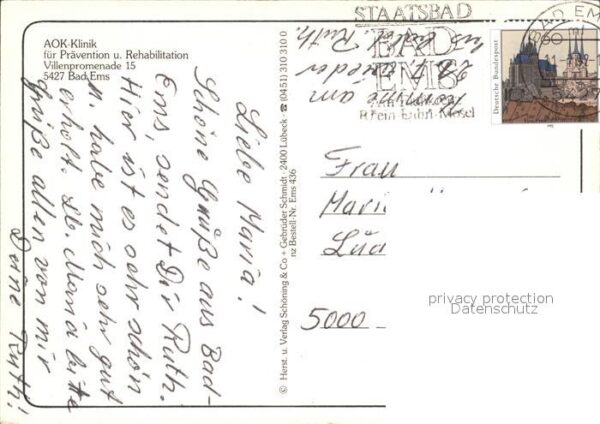 AOK-Klinik
für Prävention u. Rehabilitation
Villenpromenade 15
5427 Bad Ems
Liebe Maria!
Schöne Grüße aus Bad-
Ems, sendet Dir Ruth.
Hier ist es sehr schön
u. habe mich sehr gut
erholt. Lb. Maria bitte
grüße allen von mir
Deine Ruth!
komme am
wieder
Ruth.
© Herst. u. Verlag Schöning & Co + Gebrüder Schmidt · 2400 Lübeck · ☎ (0451) 310 310 0
nz Bestell-Nr. Ems 436
STAATSBAD
BAD
EMS
Rhein-Lahn-Mosel
BAD EM
Deutsche Bundespost
60
Frau
5000
privacy protection
Datenschutz